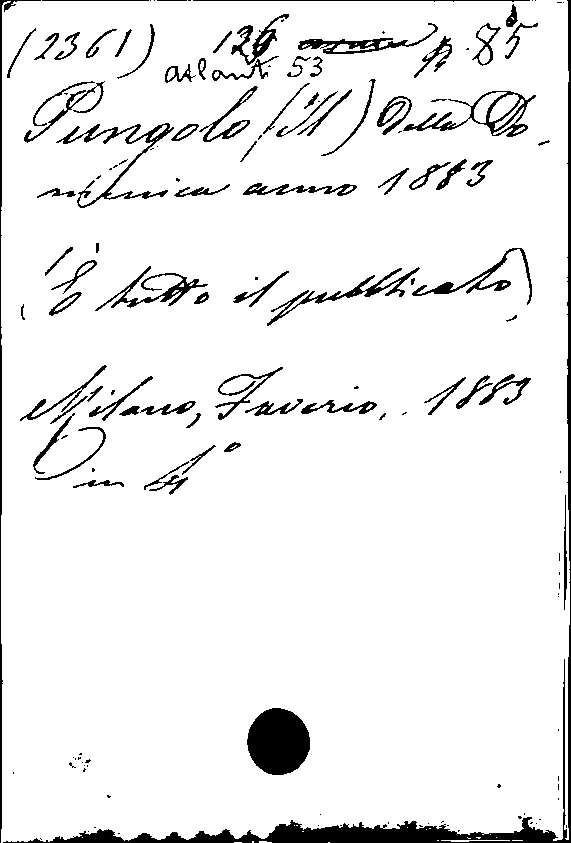 (2361) 126 p. 85
atlanti 53
Pungolo (Il) Della Do-
menica anno 1883
(È tutto il pubblicato)
Milano, Faverio, 1883
in 4°